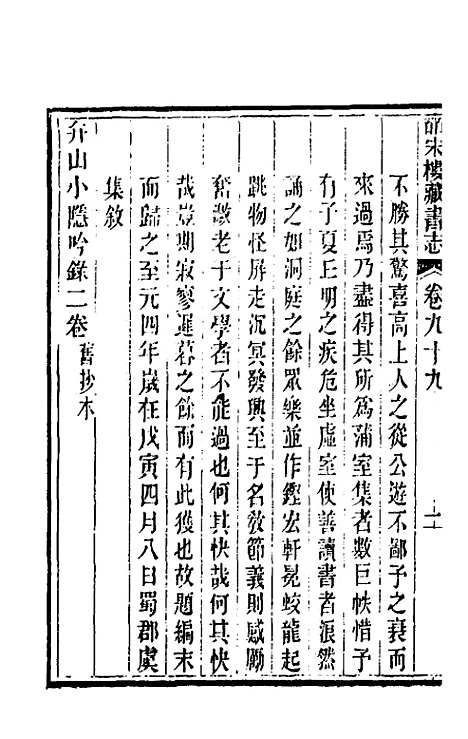 皕宋樓藏書志　卷九十九　十二
不勝其驚喜高上人之從公遊不鄙予之衰而
來過焉乃盡得其所爲蒲室集者數巨帙惜予
有子夏丘明之疾危坐虛室使善讀書者浪然
誦之如洞庭之餘眾樂並作鏗宏軒晃蛟龍起
跳物怪屏走沉冥發興至于名敎節義則感勵
奮激老于文學者不能過也何其快哉何其快
哉豈期寂寥遲暮之餘而有此獲也故題編末
而歸之至元四年歲在戊寅四月八日蜀郡虞
集敘
弁山小隱吟錄二卷 舊抄本